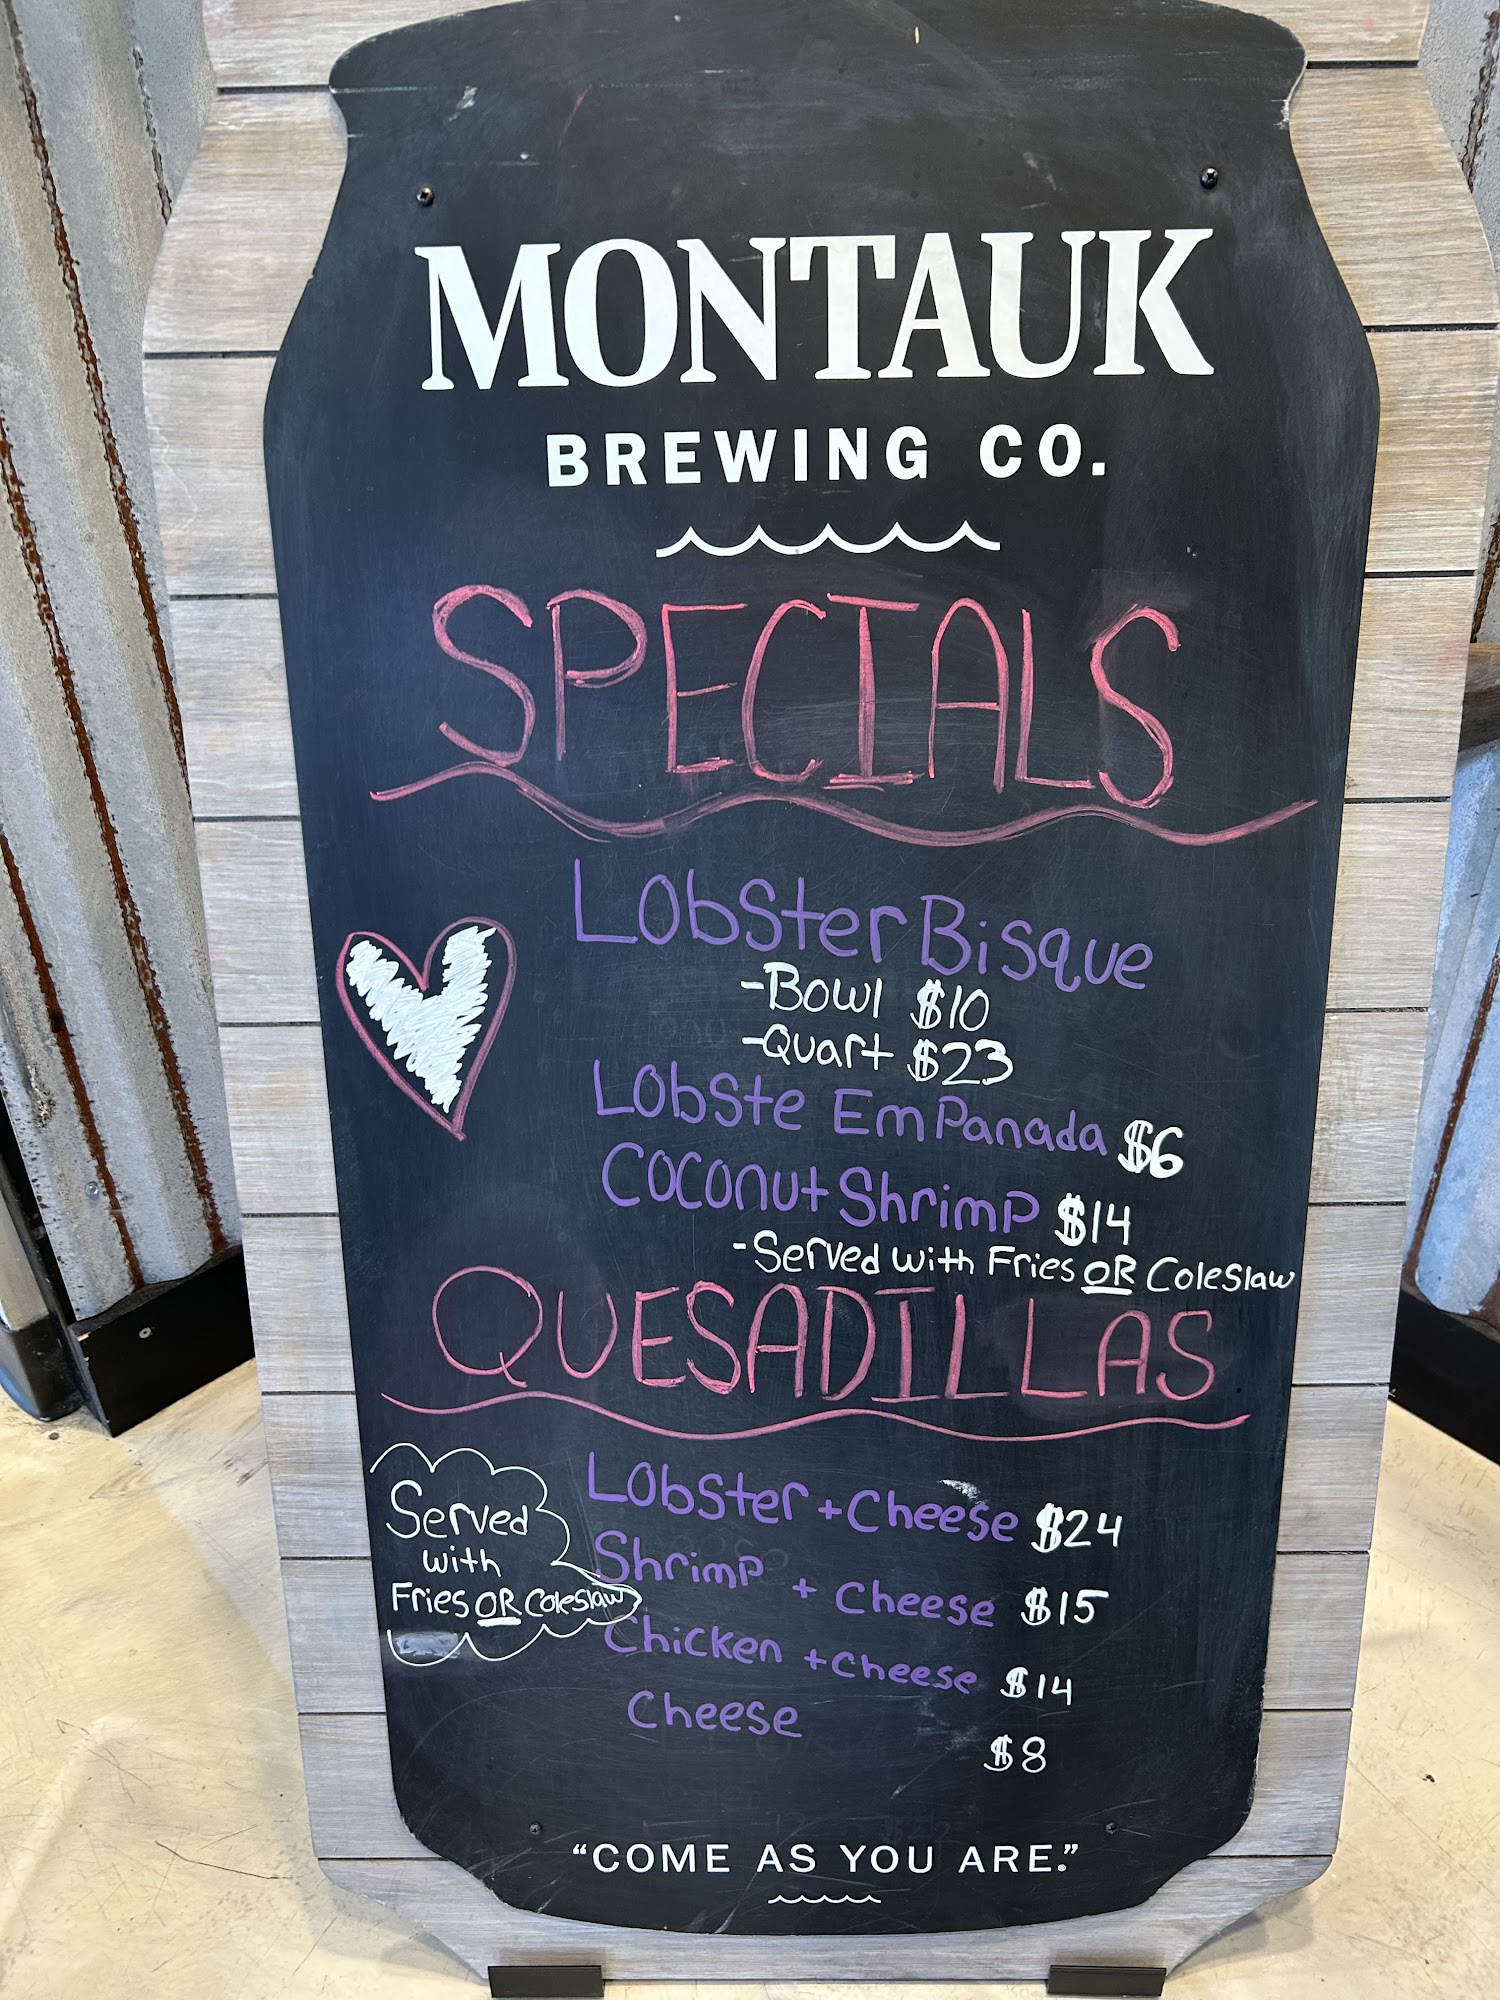 MONTAUK
BREWING CO.
SPECIALS
Lobster Bisque
-Bowl $10
-Quart $23
Lobste EmPanada $6
Coconut Shrimp $14
-Served with Fries OR Coleslaw
QUESADILLAS
Served
with
Fries OR Coleslaw
Lobster + Cheese $24
Shrimp + Cheese $15
Chicken + Cheese $14
Cheese $8
“COME AS YOU ARE.”